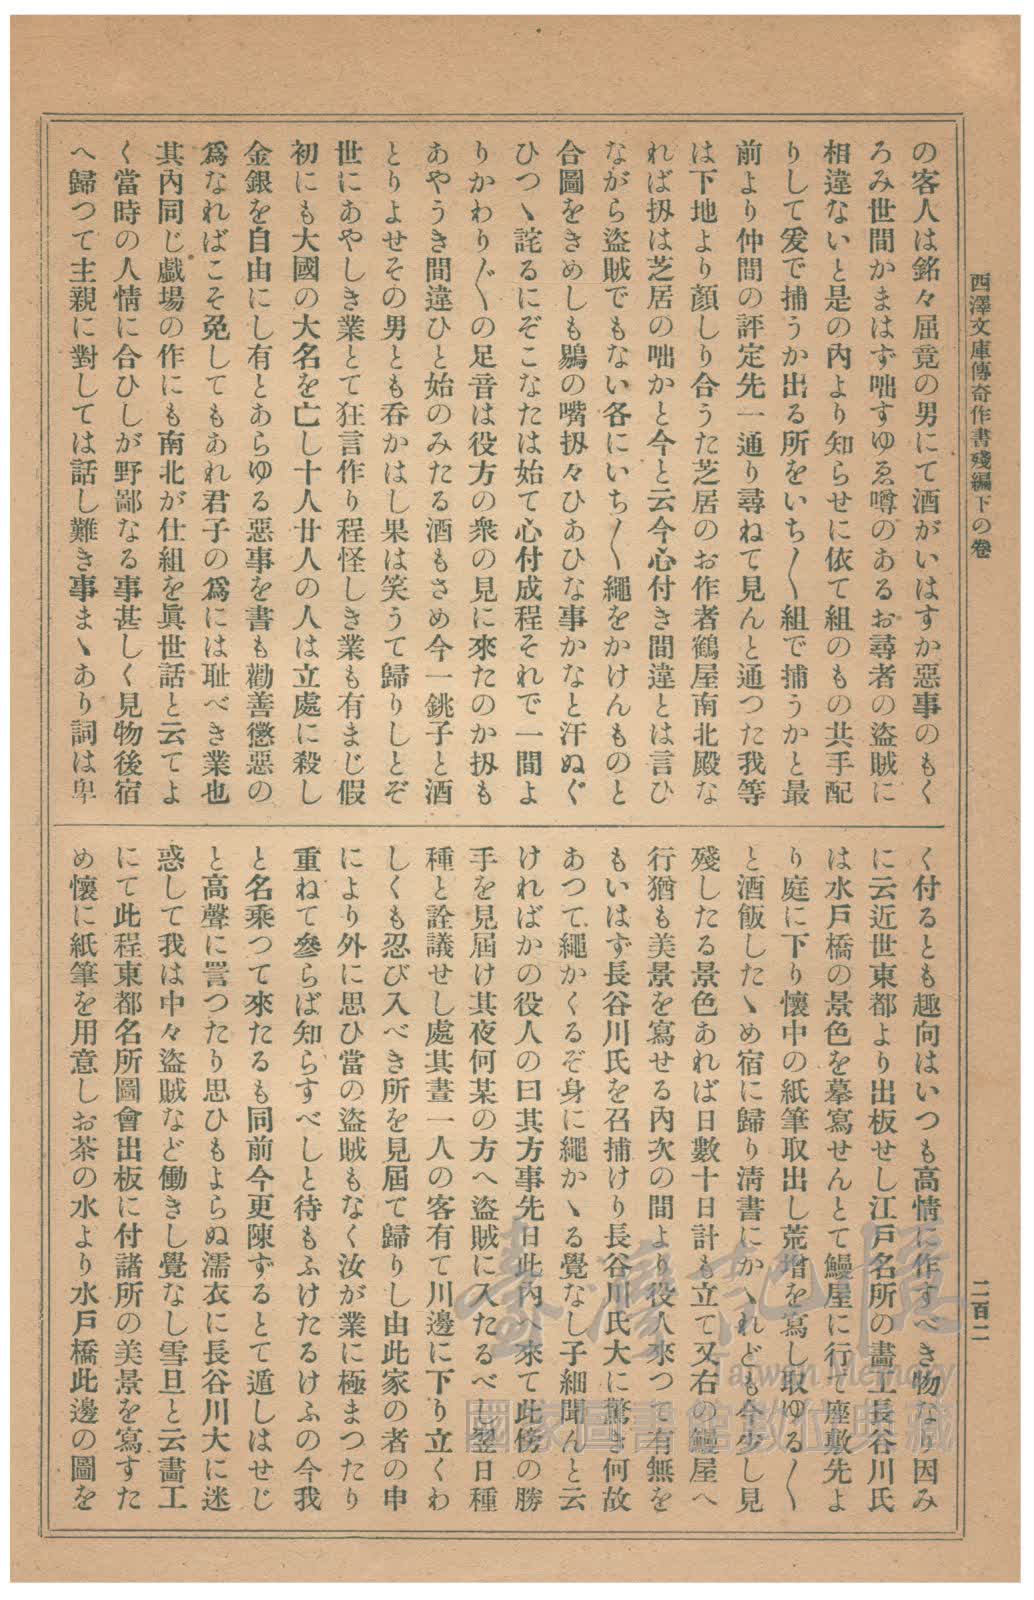 西澤文庫傳奇作書殘編下の卷
二百二
の客人は銘々屈竟の男にて酒がいはすか惡事のもく
ろみ世間かまはず咄すゆゑ噂のあるお尋者の盜賊に
相違ないと是の內より知らせに依て組のもの共手配
りして爰で捕うか出る所をいち〳〵組で捕うかと最
前より仲間の評定先一通り尋ねて見んと通つた我等
は下地より顏しり合うた芝居のお作者鶴屋南北殿な
れば扨は芝居の咄かと今と云今心付き間違とは言ひ
ながら盜賊でもない各にいち〳〵繩をかけんものと
合圖をきめしも鶍の嘴扨々ひあひな事かなと汗ぬぐ
ひつゝ詫るにぞこなたは始て心付成程それで一間よ
りかわり〴〵の足音は役方の衆の見に來たのか扨も
あやうき間違ひと始のみたる酒もさめ今一銚子と酒
とりよせその男とも呑かはし果は笑うて歸りしとぞ
世にあやしき業とて狂言作り程怪しき業も有まじ假
初にも大國の大名を亡し十人廿人の人は立處に殺し
金銀を自由にし有とあらゆる惡事を書も勸善懲惡の
爲なればこそ免してもあれ君子の爲には耻べき業也
其內同じ戲場の作にも南北が仕組を眞世話と云てよ
く當時の人情に合ひしが野鄙なる事甚しく見物後宿
へ歸つて主親に對しては話し難き事まゝあり詞は卑
く付るとも趣向はいつも高情に作すべき物なり因み
に云近世東都より出板せし江戸名所の畵工長谷川氏
は水戸橋の景色を摹寫せんとて鰻屋に行て座敷先よ
り庭に下り懷中の紙筆取出し荒增を寫し取ゆる〳〵
と酒飯したゝめ宿に歸り淸書にかゝれども今少し見
殘したる景色あれば日數十日計も立て又右の鰻屋へ
行猶も美景を寫せる內次の間より役人來つて有無を
もいはず長谷川氏を召捕けり長谷川氏大に驚き何故
あつて繩かくるぞ身に繩かゝる覺なし子細聞んと云
ければかの役人の曰其方事先日此內へ來て此傍の勝
手を見屆け其夜何某の方へ盜賊に入たるべし翌日種
種と詮議せし處其晝一人の客有て川邊に下り立くわ
しくも忍び入べき所を見屆て歸りし由此家の者の申
により外に思ひ當の盜賊もなく汝が業に極まつたり
重ねて參らば知らすべしと待もふけたるけふの今我
と名乘つて來たるも同前今更陳ずるとて遁しはせじ
と高聲に詈つたり思ひもよらぬ濡衣に長谷川大に迷
惑して我は中々盜賊など働きし覺なし雪旦と云畵工
にて此程東都名所圖會出板に付諸所の美景を寫すた
め懷に紙筆を用意しお茶の水より水戸橋此邊の圖を
臺灣記憶
Taiwan Memory
國家圖書館數位典藏